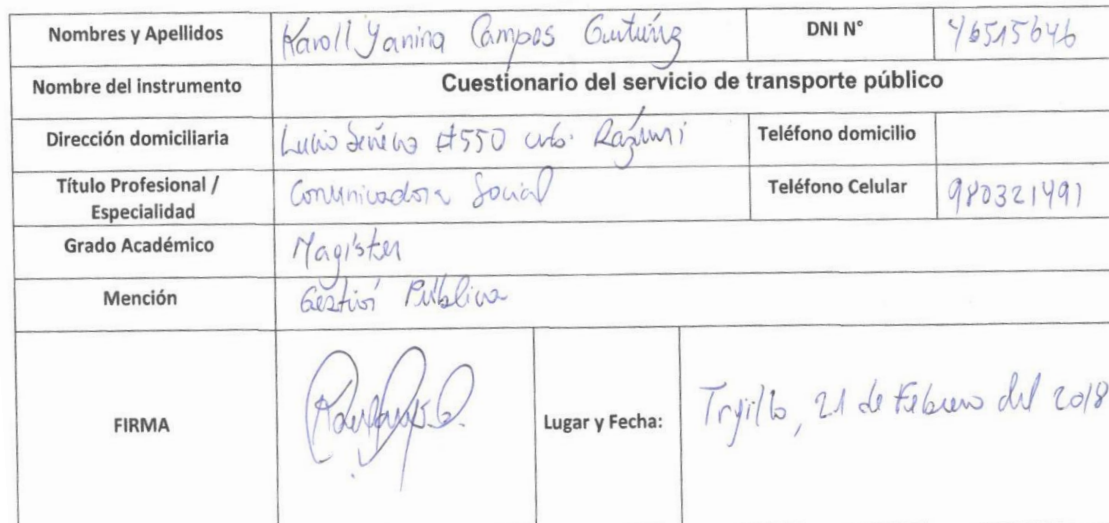 Nombres y Apellidos Karoll Yanina Campos Gutiérrez DNI N° 46515646
Nombre del instrumento Cuestionario del servicio de transporte público
Dirección domiciliaria Lucio Séneca #550 urb. Razuri Teléfono domicilio
Título Profesional / Especialidad Comunicadora Social Teléfono Celular 980321491
Grado Académico Magíster
Mención Gestión Pública
FIRMA Lugar y Fecha: Trujillo, 21 de Febrero del 2018